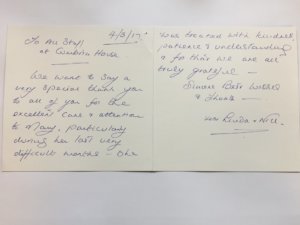 4/3/17
To All Staff
at Cumbria House
We want to say a
very special thank you
to all of you for the
excellent care & attention
to Mary, particularly
during her last very
difficult months - She
was treated with kindness
patience & understanding
& for this we are all
truly grateful -
Sincere Best Wishes
& Thanks -
Linda +